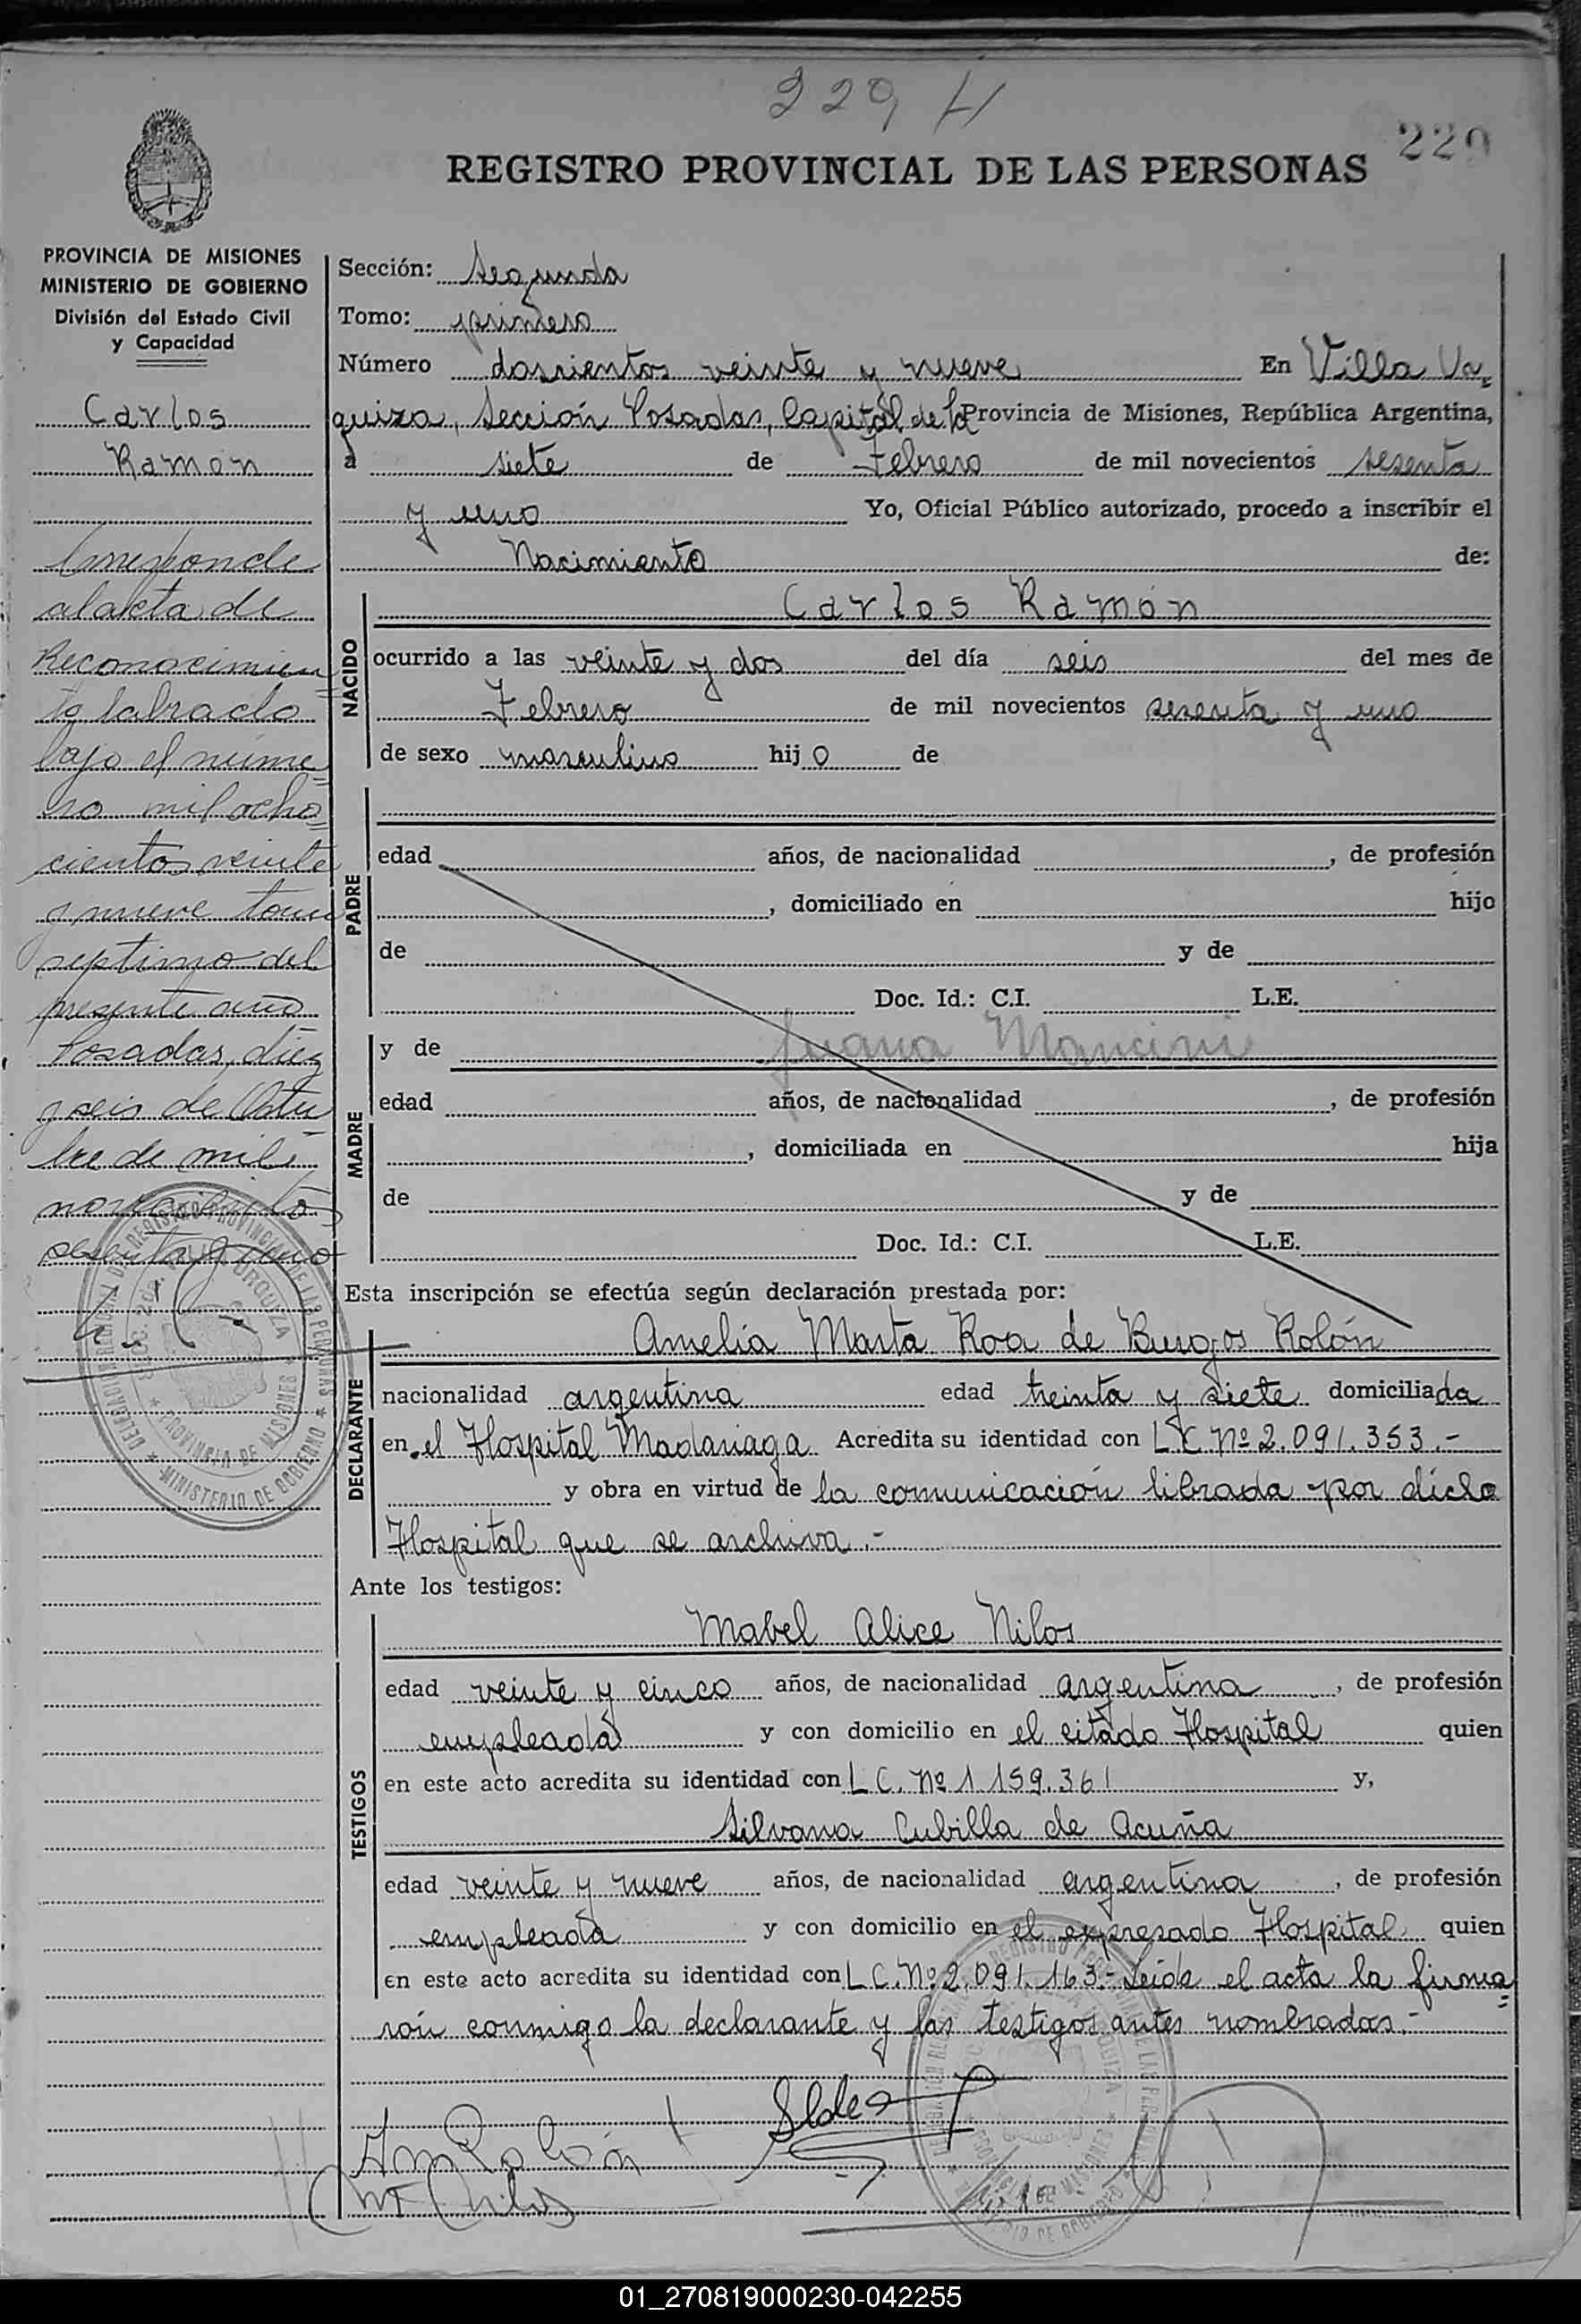 229
229
REGISTRO PROVINCIAL DE LAS PERSONAS
PROVINCIA DE MISIONES
MINISTERIO DE GOBIERNO
División del Estado Civil
y Capacidad
Carlos
Ramón
Corresponde
al acta de
Reconocimien
to labrado
bajo el núme
ro mil ocho
cientos veinte
y nueve tomo
septimo del
presente año
Posadas, diez
y seis de Octu
bre de mil
novecientos
sesenta y uno
Sección: Segunda
Tomo: primero
Número doscientos veinte y nueve En Villa Ur
quiza, Sección Posadas, Capital de la Provincia de Misiones, República Argentina,
a siete de Febrero de mil novecientos sesenta
y uno Yo, Oficial Público autorizado, procedo a inscribir el
Nacimiento de:
NACIDO
Carlos Ramón
ocurrido a las veinte y dos del día seis del mes de
Febrero de mil novecientos sesenta y uno
de sexo masculino hijo de
PADRE
edad años, de nacionalidad , de profesión
, domiciliado en hijo
de y de
Doc. Id.: C.I. L.E.
MADRE
y de Juana Mancini
edad años, de nacionalidad , de profesión
, domiciliada en hija
de y de
Doc. Id.: C.I. L.E.
Esta inscripción se efectúa según declaración prestada por:
DECLARANTE
Amelia Marta Roa de Burgos Rolón
nacionalidad argentina edad treinta y siete domiciliada
en el Hospital Madariaga Acredita su identidad con L.C. Nº 2.091.353.-
y obra en virtud de la comunicación librada por dicho
Hospital que se archiva.-
Ante los testigos:
TESTIGOS
Mabel Alice Nilos
edad veinte y cinco años, de nacionalidad argentina, de profesión
empleada y con domicilio en el citado Hospital quien
en este acto acredita su identidad con L.C. Nº 1.159.361 y,
Silvana Cubilla de Acuña
edad veinte y nueve años, de nacionalidad argentina, de profesión
empleada y con domicilio en el expresado Hospital quien
en este acto acredita su identidad con L.C. Nº 2.091.163.- Leída el acta la firma
ron conmigo la declarante y las testigos antes nombradas.-
AmRolón
01_270819000230-042255